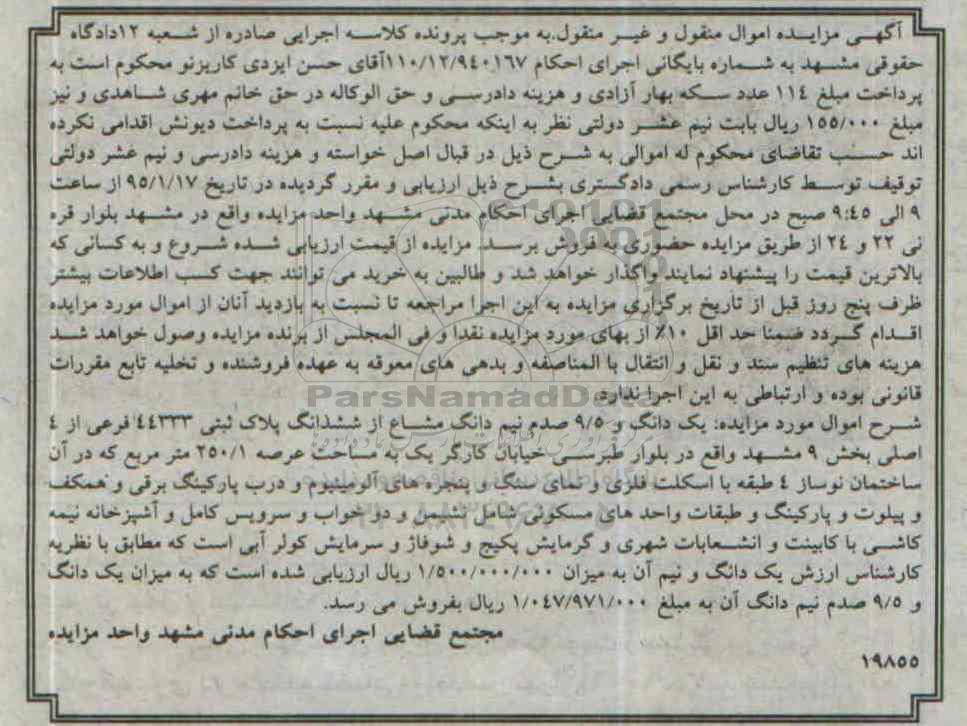 آگهی مزایده اموال منقول و غیر منقول.به موجب پرونده کلاسه اجرایی صادره از شعبه ۱۲دادگاه
حقوقی مشهد به شماره بایگانی اجرای احکام ۱۱۰/۱۲/۹٤۰۱٦۷آقای حسن ایزدی کاریزنو محکوم است به
پرداخت مبلغ ۱۱٤ عدد سکه بهار آزادی و هزینه دادرسی و حق الوکاله در حق خانم مهری شاهدی و نیز
مبلغ ۱۵۵/۰۰۰ ریال بابت نیم عشر دولتی نظر به اینکه محکوم علیه نسبت به پرداخت دیونش اقدامی نکرده
اند حسب تقاضای محکوم له اموالی به شرح ذیل در قبال اصل خواسته و هزینه دادرسی و نیم عشر دولتی
توقیف توسط کارشناس رسمی دادگستری بشرح ذیل ارزیابی و مقرر گردیده در تاریخ ۹۵/۱/۱۷ از ساعت
۹ الی ۹:٤۵ صبح در محل مجتمع قضایی اجرای احکام مدنی مشهد واحد مزایده واقع در مشهد بلوار قره
نی ۲۲ و ۲٤ از طریق مزایده حضوری به فروش برسد. مزایده از قیمت ارزیابی شده شروع و به کسانی که
بالاترین قیمت را پیشنهاد نمایند واگذار خواهد شد و طالبین به خرید می توانند جهت کسب اطلاعات بیشتر
ظرف پنج روز قبل از تاریخ برگزاری مزایده به این اجرا مراجعه تا نسبت به بازدید آنان از اموال مورد مزایده
اقدام گردد ضمنا حد اقل ۱۰٪ از بهای مورد مزایده نقدا و فی المجلس از برنده مزایده وصول خواهد شد
هزینه های تنظیم سند و نقل و انتقال با المناصفه و بدهی های معوقه به عهده فروشنده و تخلیه تابع مقررات
قانونی بوده و ارتباطی به این اجرا ندارد.
ParsNamadData
شرح اموال مورد مزایده: یک دانگ و ۹/۵ صدم نیم دانگ مشاع از ششدانگ پلاک ثبتی ٤٤۳۳۳ فرعی از ٤
اصلی بخش ۹ مشهد واقع در بلوار طبرسی خیابان کارگر یک به مساحت عرصه ۲۵۰/۱ متر مربع که در آن
ساختمان نوساز ٤ طبقه با اسکلت فلزی و نمای سنگ و پنجره های آلومینیوم و درب پارکینگ برقی و همکف
و پیلوت و پارکینگ و طبقات واحد های مسکونی شامل نشیمن و دو خواب و سرویس کامل و آشپزخانه نیمه
کاشی با کابینت و انشعابات شهری و گرمایش پکیج و شوفاژ و سرمایش کولر آبی است که مطابق با نظریه
کارشناس ارزش یک دانگ و نیم آن به میزان ۱/۵۰۰/۰۰۰/۰۰۰ ریال ارزیابی شده است که به میزان یک دانگ
و ۹/۵ صدم نیم دانگ آن به مبلغ ۱/۰٤۷/۹۷۱/۰۰۰ ریال بفروش می رسد.
مجتمع قضایی اجرای احکام مدنی مشهد واحد مزایده
۱۹۸۵۵